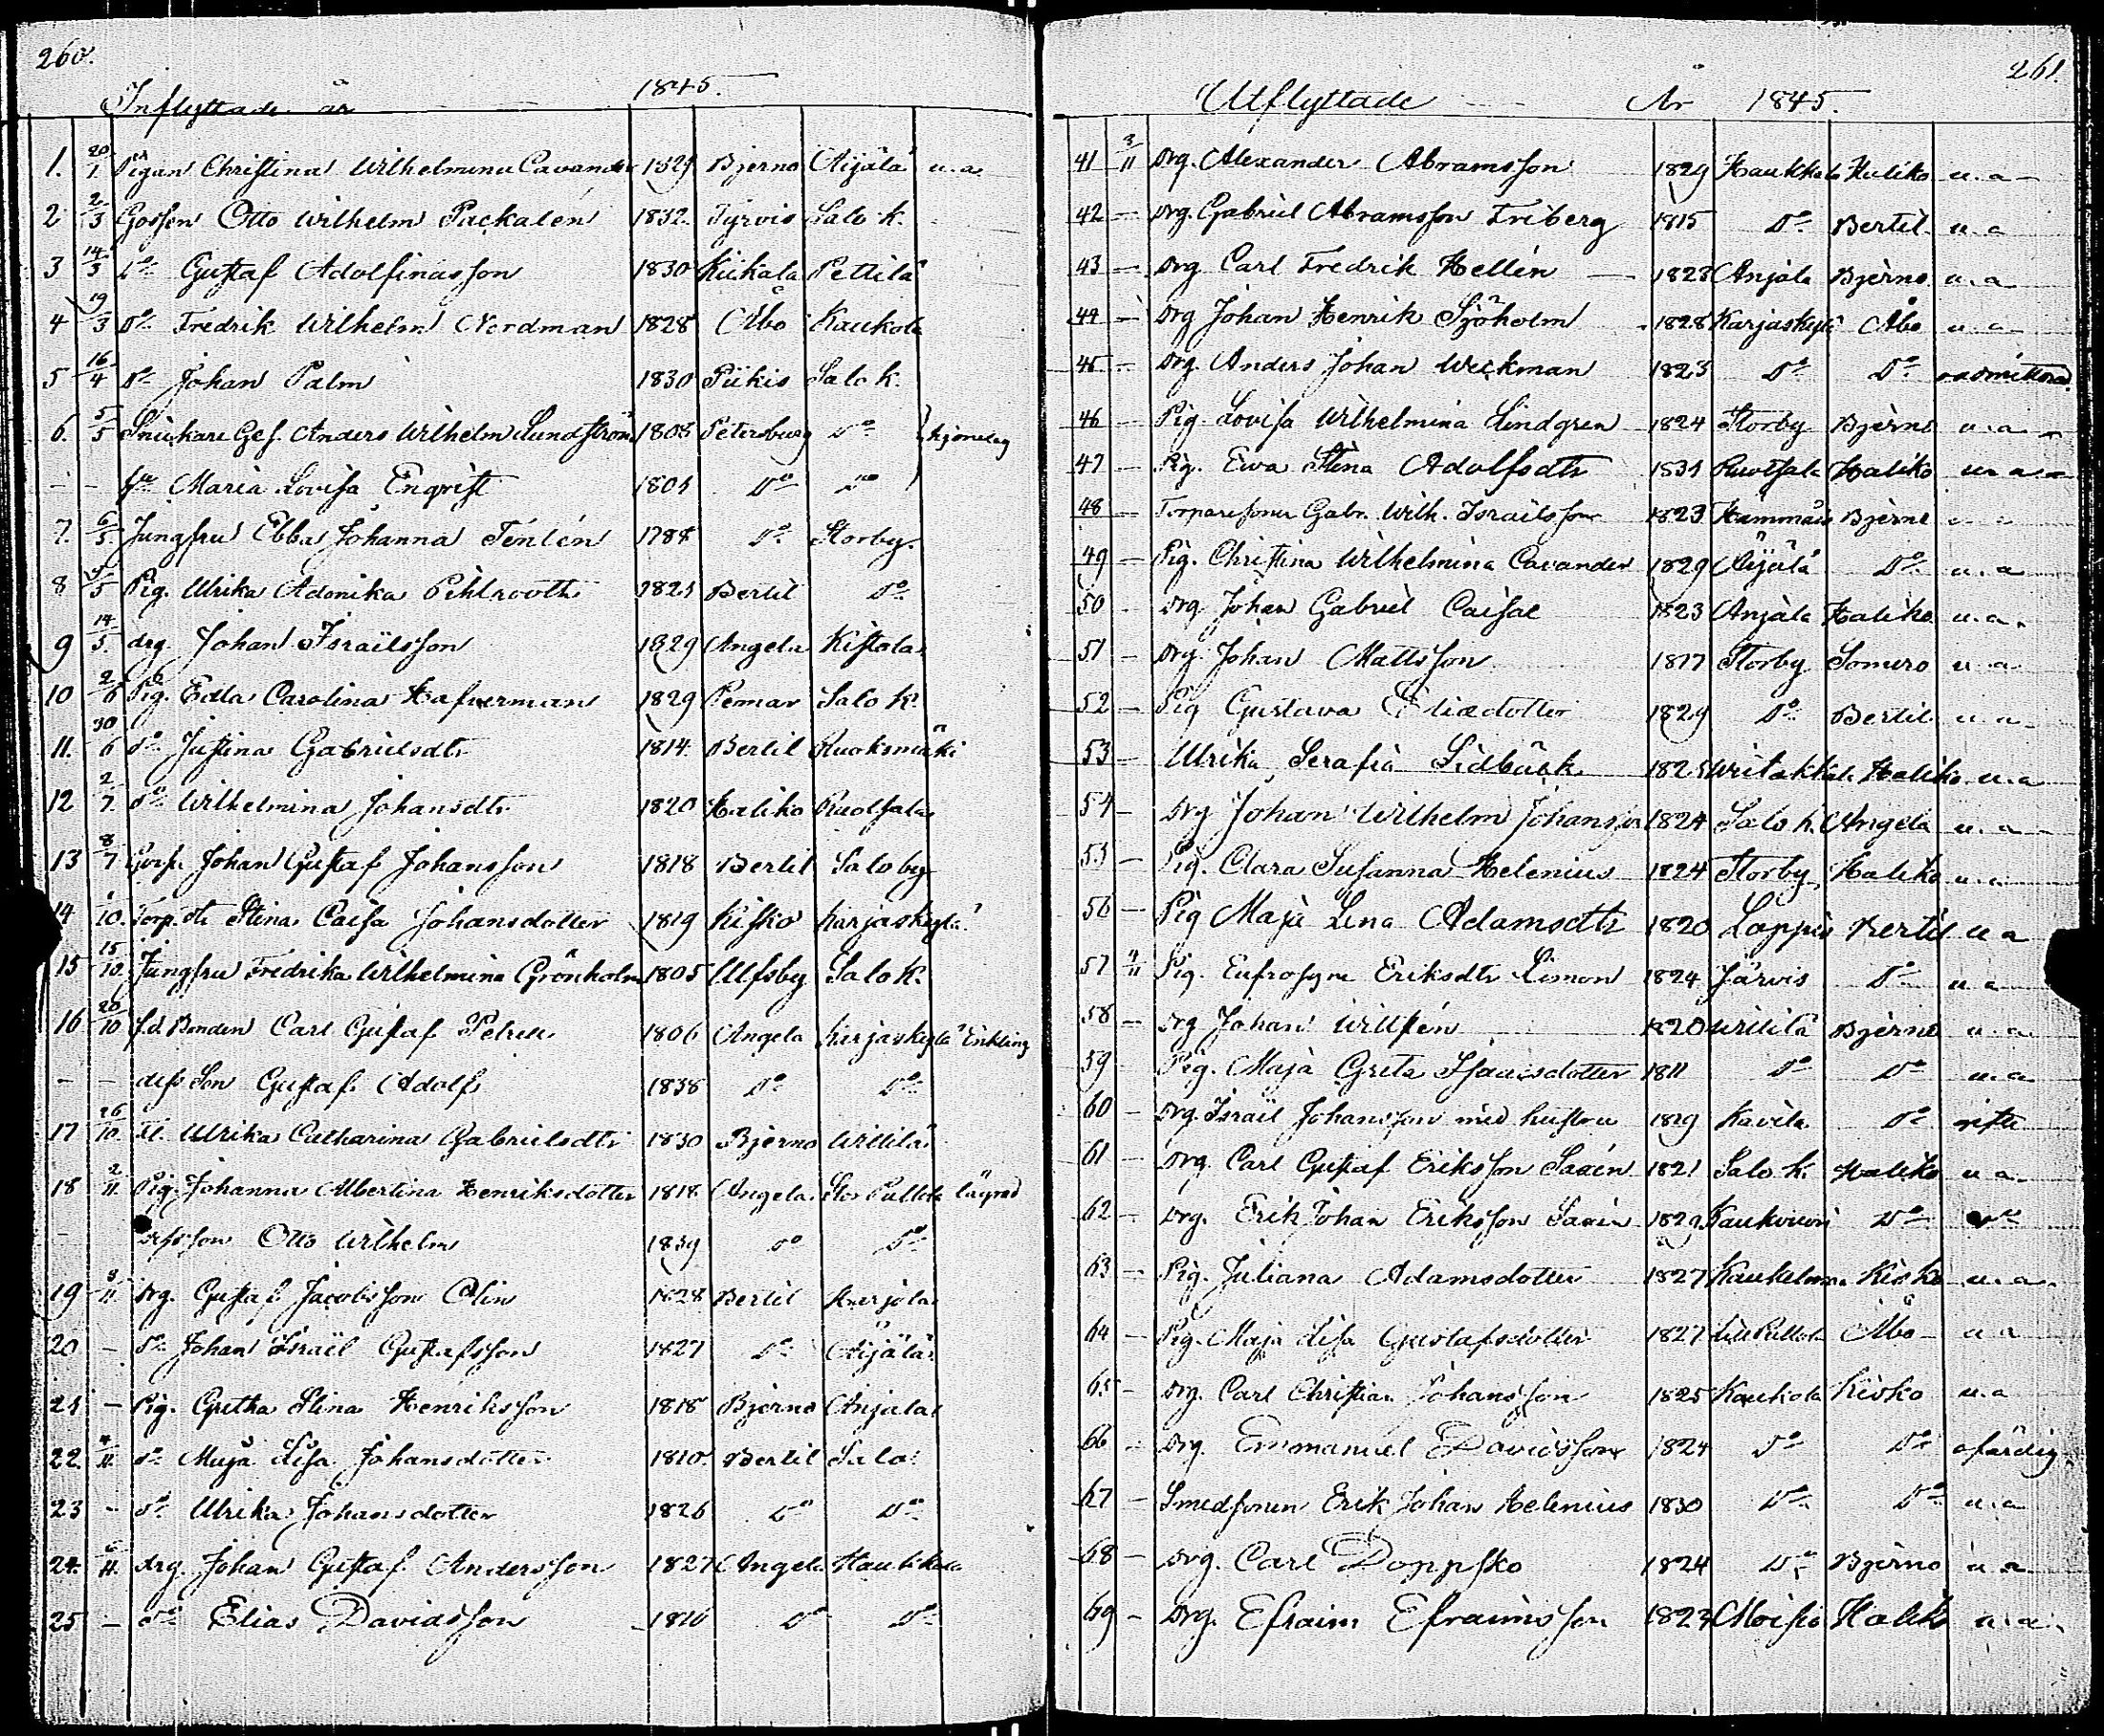 260.
Inflyttade år 1845.
1. 20/1 Pigan Christina Wilhelmina Cavander 1829 Bjerno Äijälä u. a.
2 2/3 Gossen Otto Wilhelm Packalén 1832. Tyrvis Salo k.
3 14/3 Do Gustaf Adolfinasson 1830 Kiikala Pettilä
4 19/3 Do Fredrik Wilhelm Nordman 1828 Åbo Kaukola
5 16/4 Do Johan Palm 1830 Piikis Salo k.
6. 5/5 Snickare Ges. Anders Wilhelm Lundström 1808 Petersburg Do
- - Maria Lovisa Enqvist 1801 Do Do
7. 6/5 Jungfru Ebba Johanna Tenlén 1788 Do Storby.
8 /5 Pig. Ulrika Adonika Pihlrooth 1821 Bertil Do
9 14/5. drg. Johan Israilsson 1829 Angela Kistola
10 2/6 Pig. Edla Carolina Hafverman 1829 Pemar Salo K.
11. 30/6 Do Justina Gabrielsdtr 1814. Bertil Ruoksmäki
12 2/7. Do Wilhelmina Johansdtr 1820 Haliko Ruotsala
13 8/7 Johan Gustaf Johansson 1818 Bertil Salo by
14 1/10. Torp. dtr Stina Caisa Johansdotter 1819 Kisko Karjaskylä
15 15/10. Jungfru Fredrika Wilhelmina Grönholm 1805 Ulfsby Salo K.
16 20/10 f.d. Bonden Carl Gustaf Petrell 1806 Angela Karjaskylä Enkling
- - dess Son Gustaf Adolf 1838 Do Do
17 26/10. Ulrika Catharina Gabrielsdtr 1830 Bjerno Willilä
18 2/11. Pig. Johanna Albertina Henriksdotter 1818 Angela Stor Pullola lägrad
- dess son Otto Wilhelm 1839 Do Do
19 3/11. Drg. Gustaf Jacobsson Olin 1828 Bertil Karjola
20 - Do Johan Israël Gustafsson 1827 Do Äijälä
21 - Pig. Gretha Stina Henriksson 1818 Bjerno Anjala
22 4/11 Do Maja Lisa Johansdotter 1810. Bertil Salo
23 - Do Ulrika Johansdotter 1826 Do Do
24. 6/11. drg. Johan Gustaf Andersson 1827 Angela Haukkala
25 - Do Elias Davidsson 1816 Do Do
261.
Utflyttade År 1845.
41 3/11 Drg. Alexander Abramsson 1829 Haukkala Haliko u. a
42 - Drg. Gabriel Abramsson Friberg 1815 Do Bertil u. a
43 - Drg Carl Fredrik Hellén 1828 Anjala Bjerno u. a
44 - Drg Johan Henrik Sjöholm 1828 Karjaskylä Åbo u. a
45 - Drg. Anders Johan Weckman 1823 Do Do oadmitterad
46 - Pig. Lovisa Wilhelmina Lindgren 1824 Storby Bjerno u. a
47 - Pig. Ewa Stina Adolfsdtr 1831 Ruotsala Haliko u. a
48 - Torparesonen Gabr. Wilh. Israilsson 1823 Hammais Bjerno u a
49 - Pig. Christina Wilhelmina Cavander 1829 Äijälä Do u. a
50 - Drg. Johan Gabriel Caisae 1823 Anjala Haliko u. a.
51 - Drg. Johan Mattsson 1817 Storby Somero u a
52 - Pig Gustava Eliædotter 1829 Do Bertil u a
53 - Ulrika Serafia Lidbäck 1821 Writakkala Haliko u. a
54 - Drg Johan Wilhelm Johansson 1824 Salo k. Angela u. a
55 - Pig. Clara Susanna Helenius 1824 Storby Haliko u. a
56 - Pig Maja Lena Adamsdtr 1820 Loppis Bertil u a
57 4/11 Pig. Eufrosyne Eriksdtr Limon 1824 Järvis Do u a
58 - Drg Johan Willstén 1820 Wililä Bjerno u. a
59 - Pig. Maja Greta Isaacsdotter 1811 Do Do u. a
60 - Drg. Israil Johansson med hustru 1819 Kavila Do vifte
61 - Drg. Carl Gustaf Eriksson Saxén 1821 Salo k. Haliko u a
62 - Drg. Erik Johan Eriksson Saxén 1829 Kaukvuori Do Do
63 - Pig. Juliana Adamsdotter 1827 Kaukelma Kisko u. a
64 - Pig. Maja Lisa Gustafsdotter 1827 Lill Pullola Åbo u a
65 - Drg. Carl Christian Johansson 1825 Kaukola Kisko u. a
66 - Drg. Emmanuel Davidsson 1824 Do Do ofärdig
67 - Smedsonen Erik Johan Helenius 1830 Do Do u. a
68 - Drg. Carl Doppsko 1824 Do Bjerno u. a
69 - Drg. Efraim Efraimsson 1823 Moisio Haliko u. a.